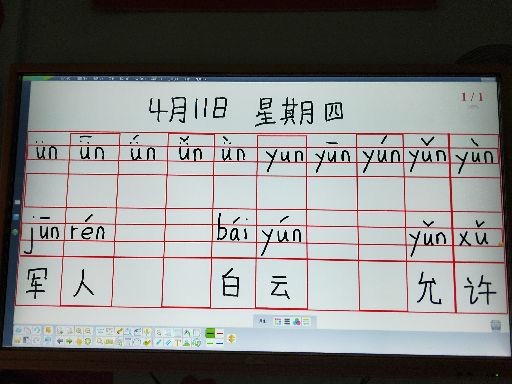 1/1
4月11日 星期四
ün ǖn ǘn ǚn ǜn yun yūn yún yǔn yùn
jūn rén bái yún yǔn xǔ
军 人 白 云 允 许